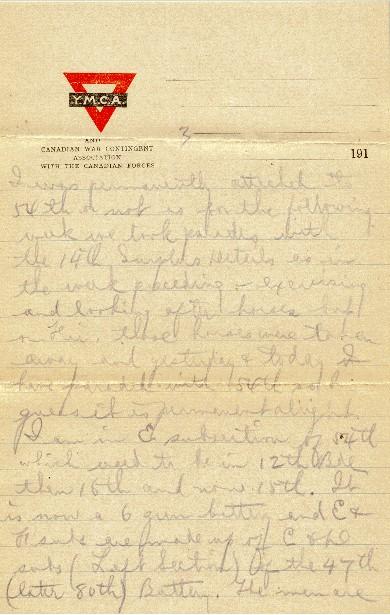 Y.M.C.A.
AND
CANADIAN WAR CONTINGENT
ASSOCIATION
WITH THE CANADIAN FORCES
3
191
I was permanently attached to
54th or not as for the following
week we took parades with
the 14th Surplus Details as in
the week preceding - exercising
and looking after horses but
on Fri. those horses were taken
away and yesterday & today I
have paraded with 54th so I
guess it is permanent alright.
I am in E subsection of 54th
which used to be in 12th Bde
then 16th and now 15th. It
is now a 6 gun battery and E &
F subs are made up of C & D
subs (Left Section) of the 47th
(later 80th) Battery. The men are